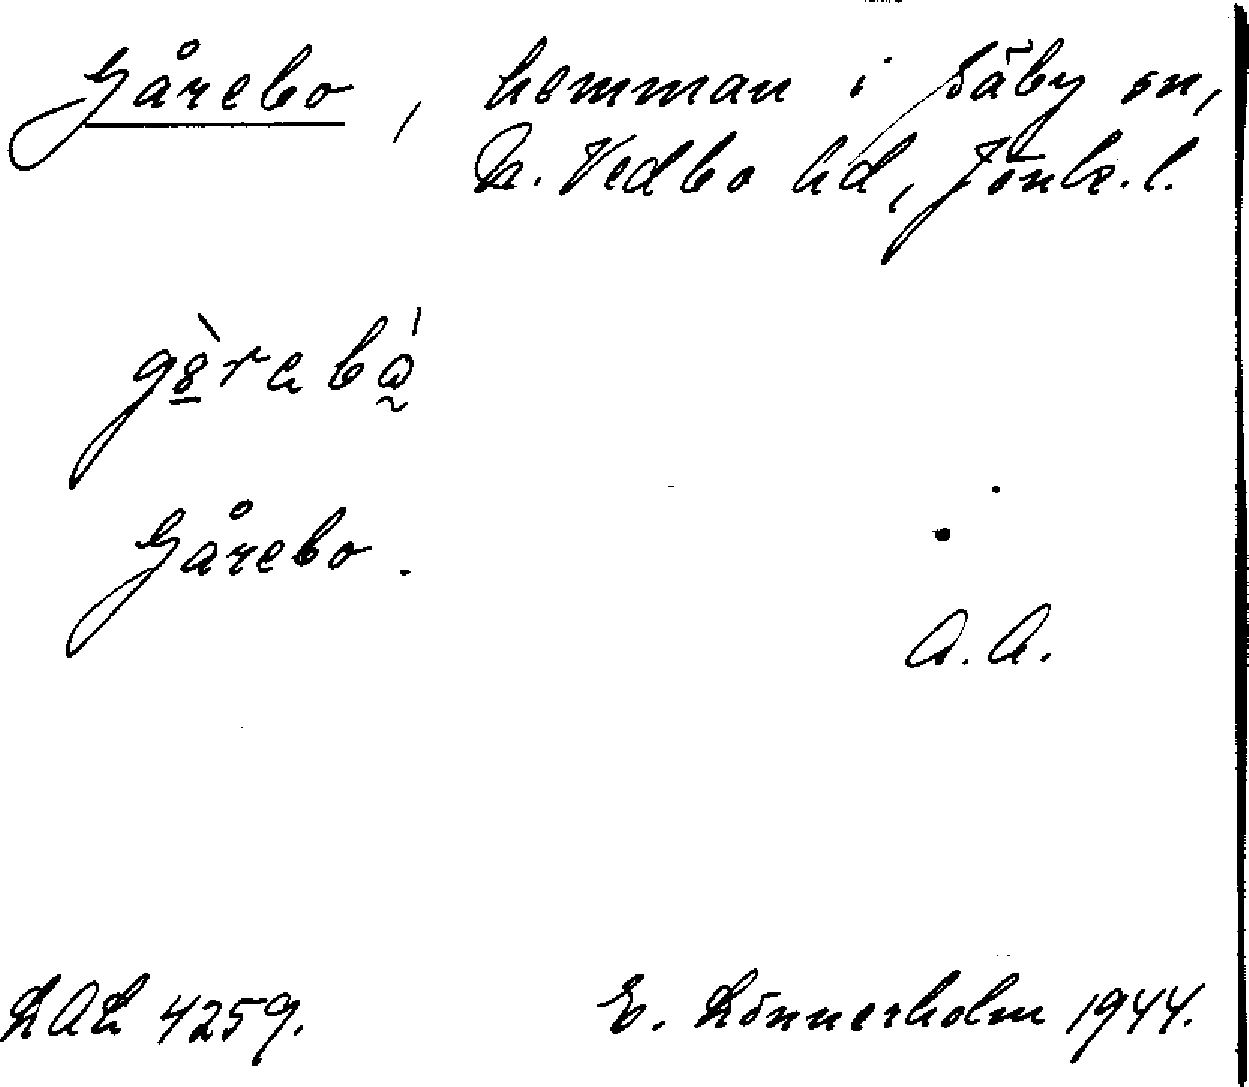 Gårebo, hemman i Säby sn,
N. Vedbo hd, Jönk. l.
Gårebo.
A. A.
LAL 4259. E. Lönnerholm 1944.